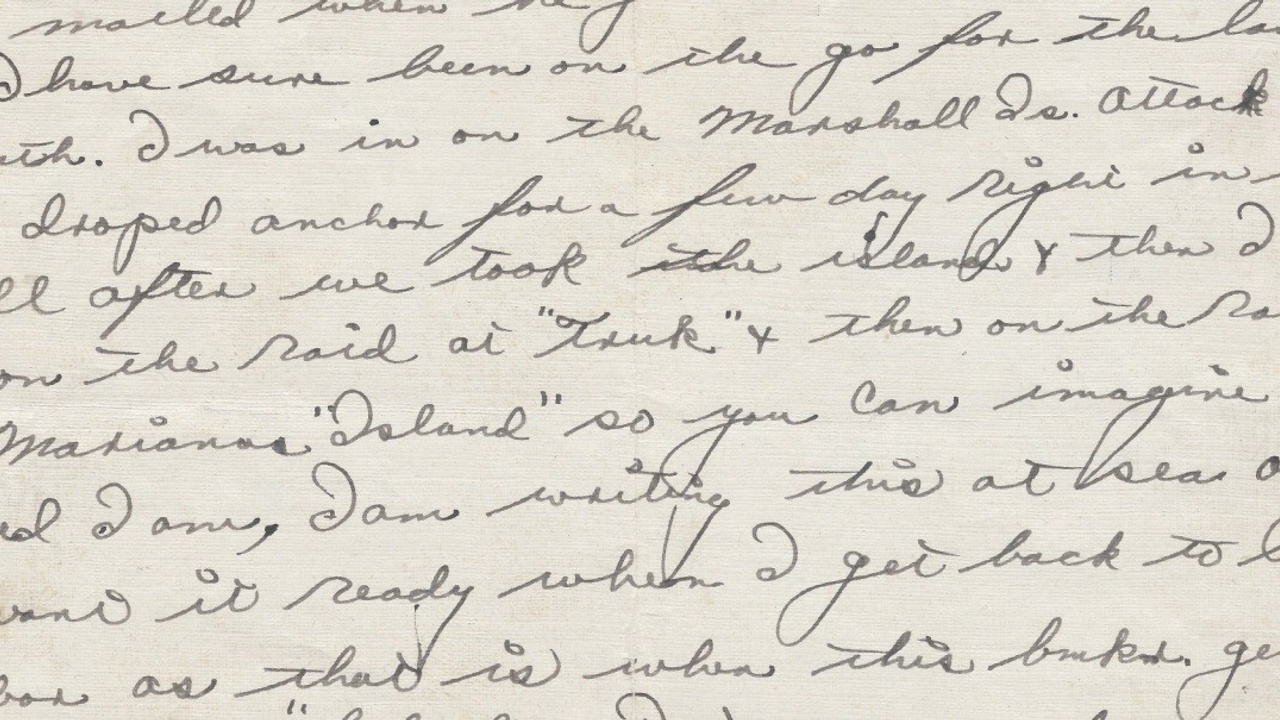 mailed when
I have sure been on the go for the
I was in on the Marshall Is. Attack
droped anchor for a few day right in
after we took the island & then I
on the raid at "Truk" & then on the
Marianas "Island" so you can imagine
I am, I am writing this at sea
it ready when I get back to
as that is when this bmkr. ge